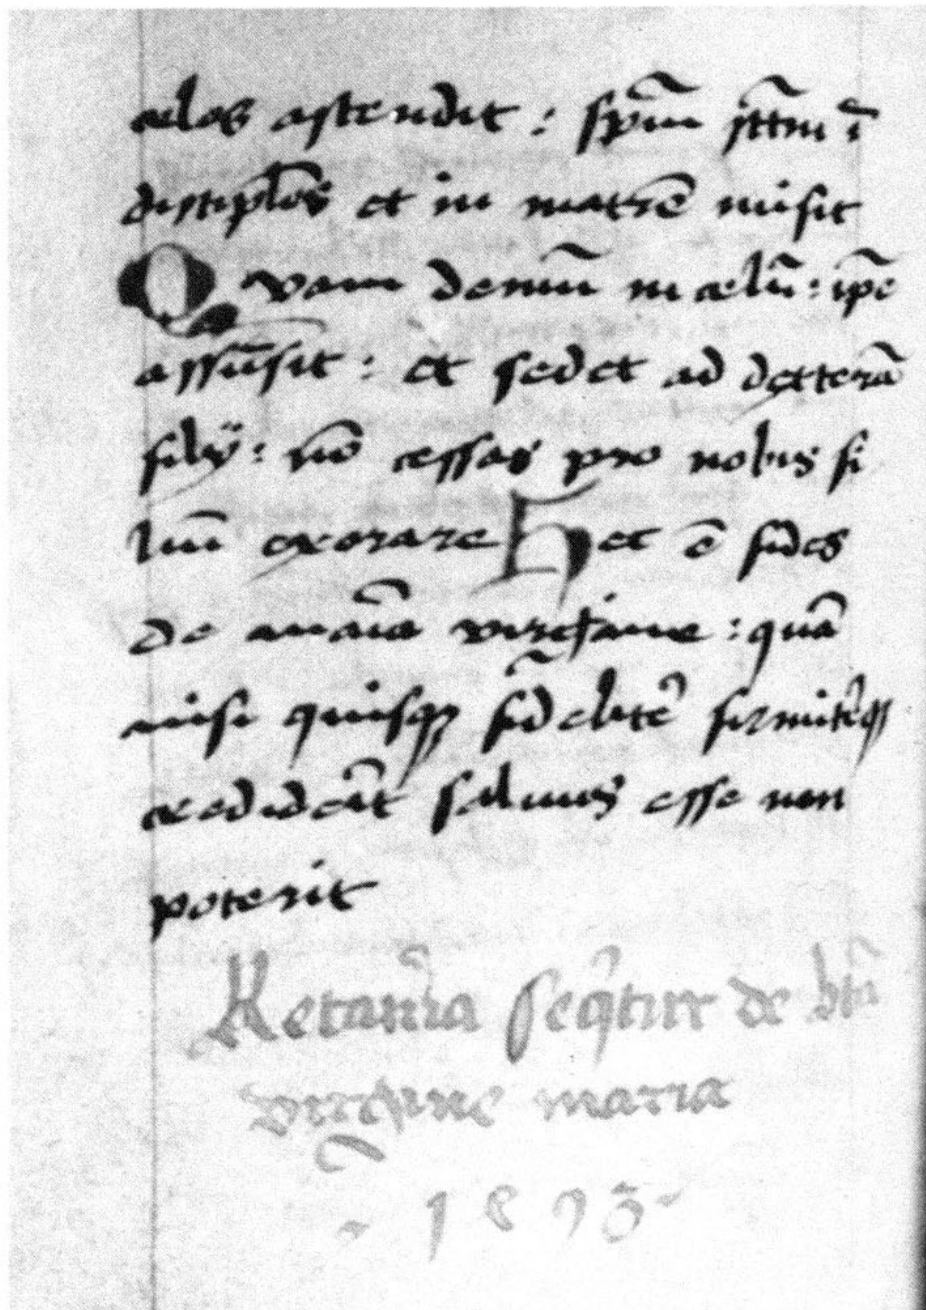 celos ascendit : spm̄ sctm̄ ī
discipl̄os et in matrē misit
Quam demū in celū : ip̄e
assūsit : et sedet ad dexterā
filij : nō cessas pro nobis fi
liū exorare Hec ē fides
de maria virgine : quā
nisi quisqꝫ fidelitē firmitēqꝫ
crediderīt saluus esse non
poterit
Letania seq̄tur de btā
virgine maria